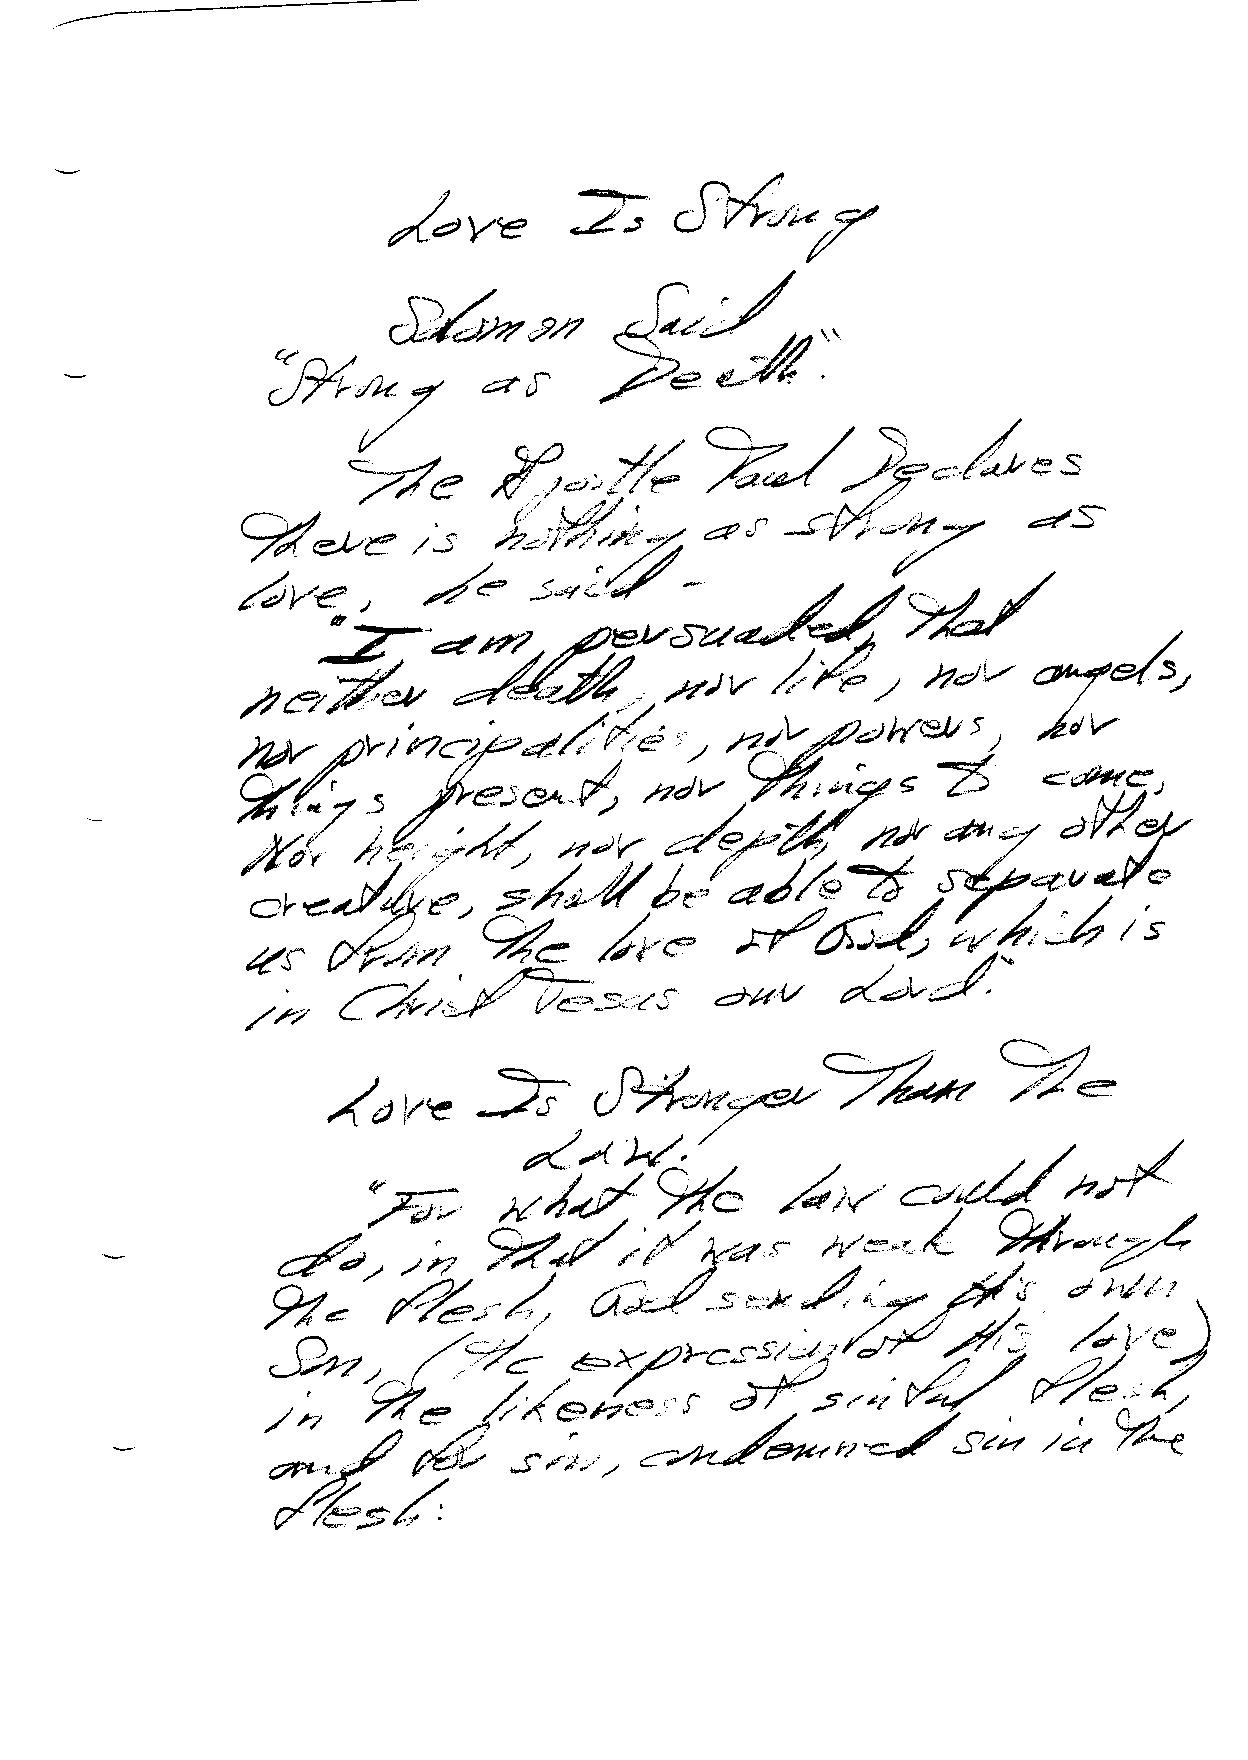 Love Is Strong
Solomon Said
"Strong as Death".
The Apostle Paul Declares
there is nothing as strong as
love, he said -
"I am persuaded, that
neither death, nor life, nor angels,
nor principalities, nor powers, nor
things present, nor things to come,
Nor height, nor depth, nor any other
creature, shall be able to separate
us from the love of God, which is
in Christ Jesus our Lord."
Love Is Stronger Than The
Law.
"For what the law could not
do, in that it was weak through
the flesh, God sending His own
Son, (the expression of His love)
in the likeness of sinful flesh,
and for sin, condemned sin in the
flesh: